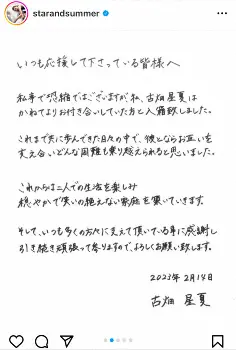 starandsummer
いつも応援して下さっている皆様へ
私事で恐縮ではございますが、私、古畑星夏は
かねてよりお付き合いしていた方と入籍致しました。
これまで共に歩んできた日々の中で、彼とならお互いを
支え合いどんな困難も乗り越えられると思いました。
これからは二人での生活を楽しみ
穏やかで笑いの絶えない家庭を築いていきます。
そして、いつも多くの方々に支えて頂いている事に感謝し
引き続き頑張って参りますので、よろしくお願い致します。
2023年2月14日
古畑 星夏